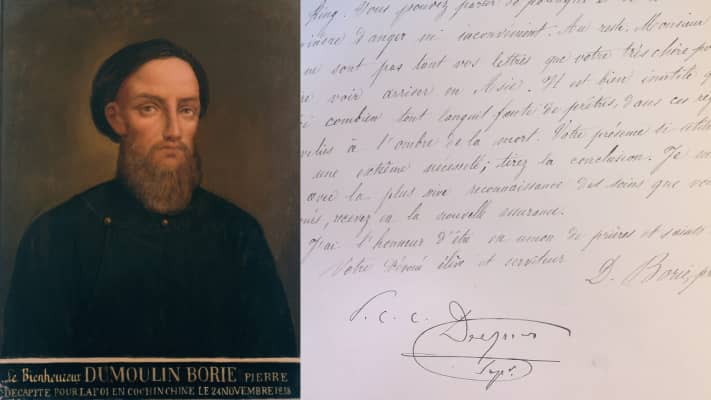 Le Bienheureux DUMOULIN BORIE PIERRE
DECAPITE POUR LA FOI EN COCHINCHINE LE 24 NOVEMBRE 1838
King. Vous pouvez parler
d'anger ni inconvenient. Au reste, Monsieur
ne sont pas tout vos lettres que votre très chère
voir arriver en Asie. Il est bien inutile
combien tout languit faute de prêtres, dans ces
à l'ombre de la mort. Votre présence ici
une extrême nécessité; tirez la conclusion. Je
avec la plus vive reconnaissance des soins que
recevez en la nouvelle assurance.
J'ai l'honneur d'être en union de prières et saints
Votre dévoué élève et serviteur
D. Borie,
P. C. C.